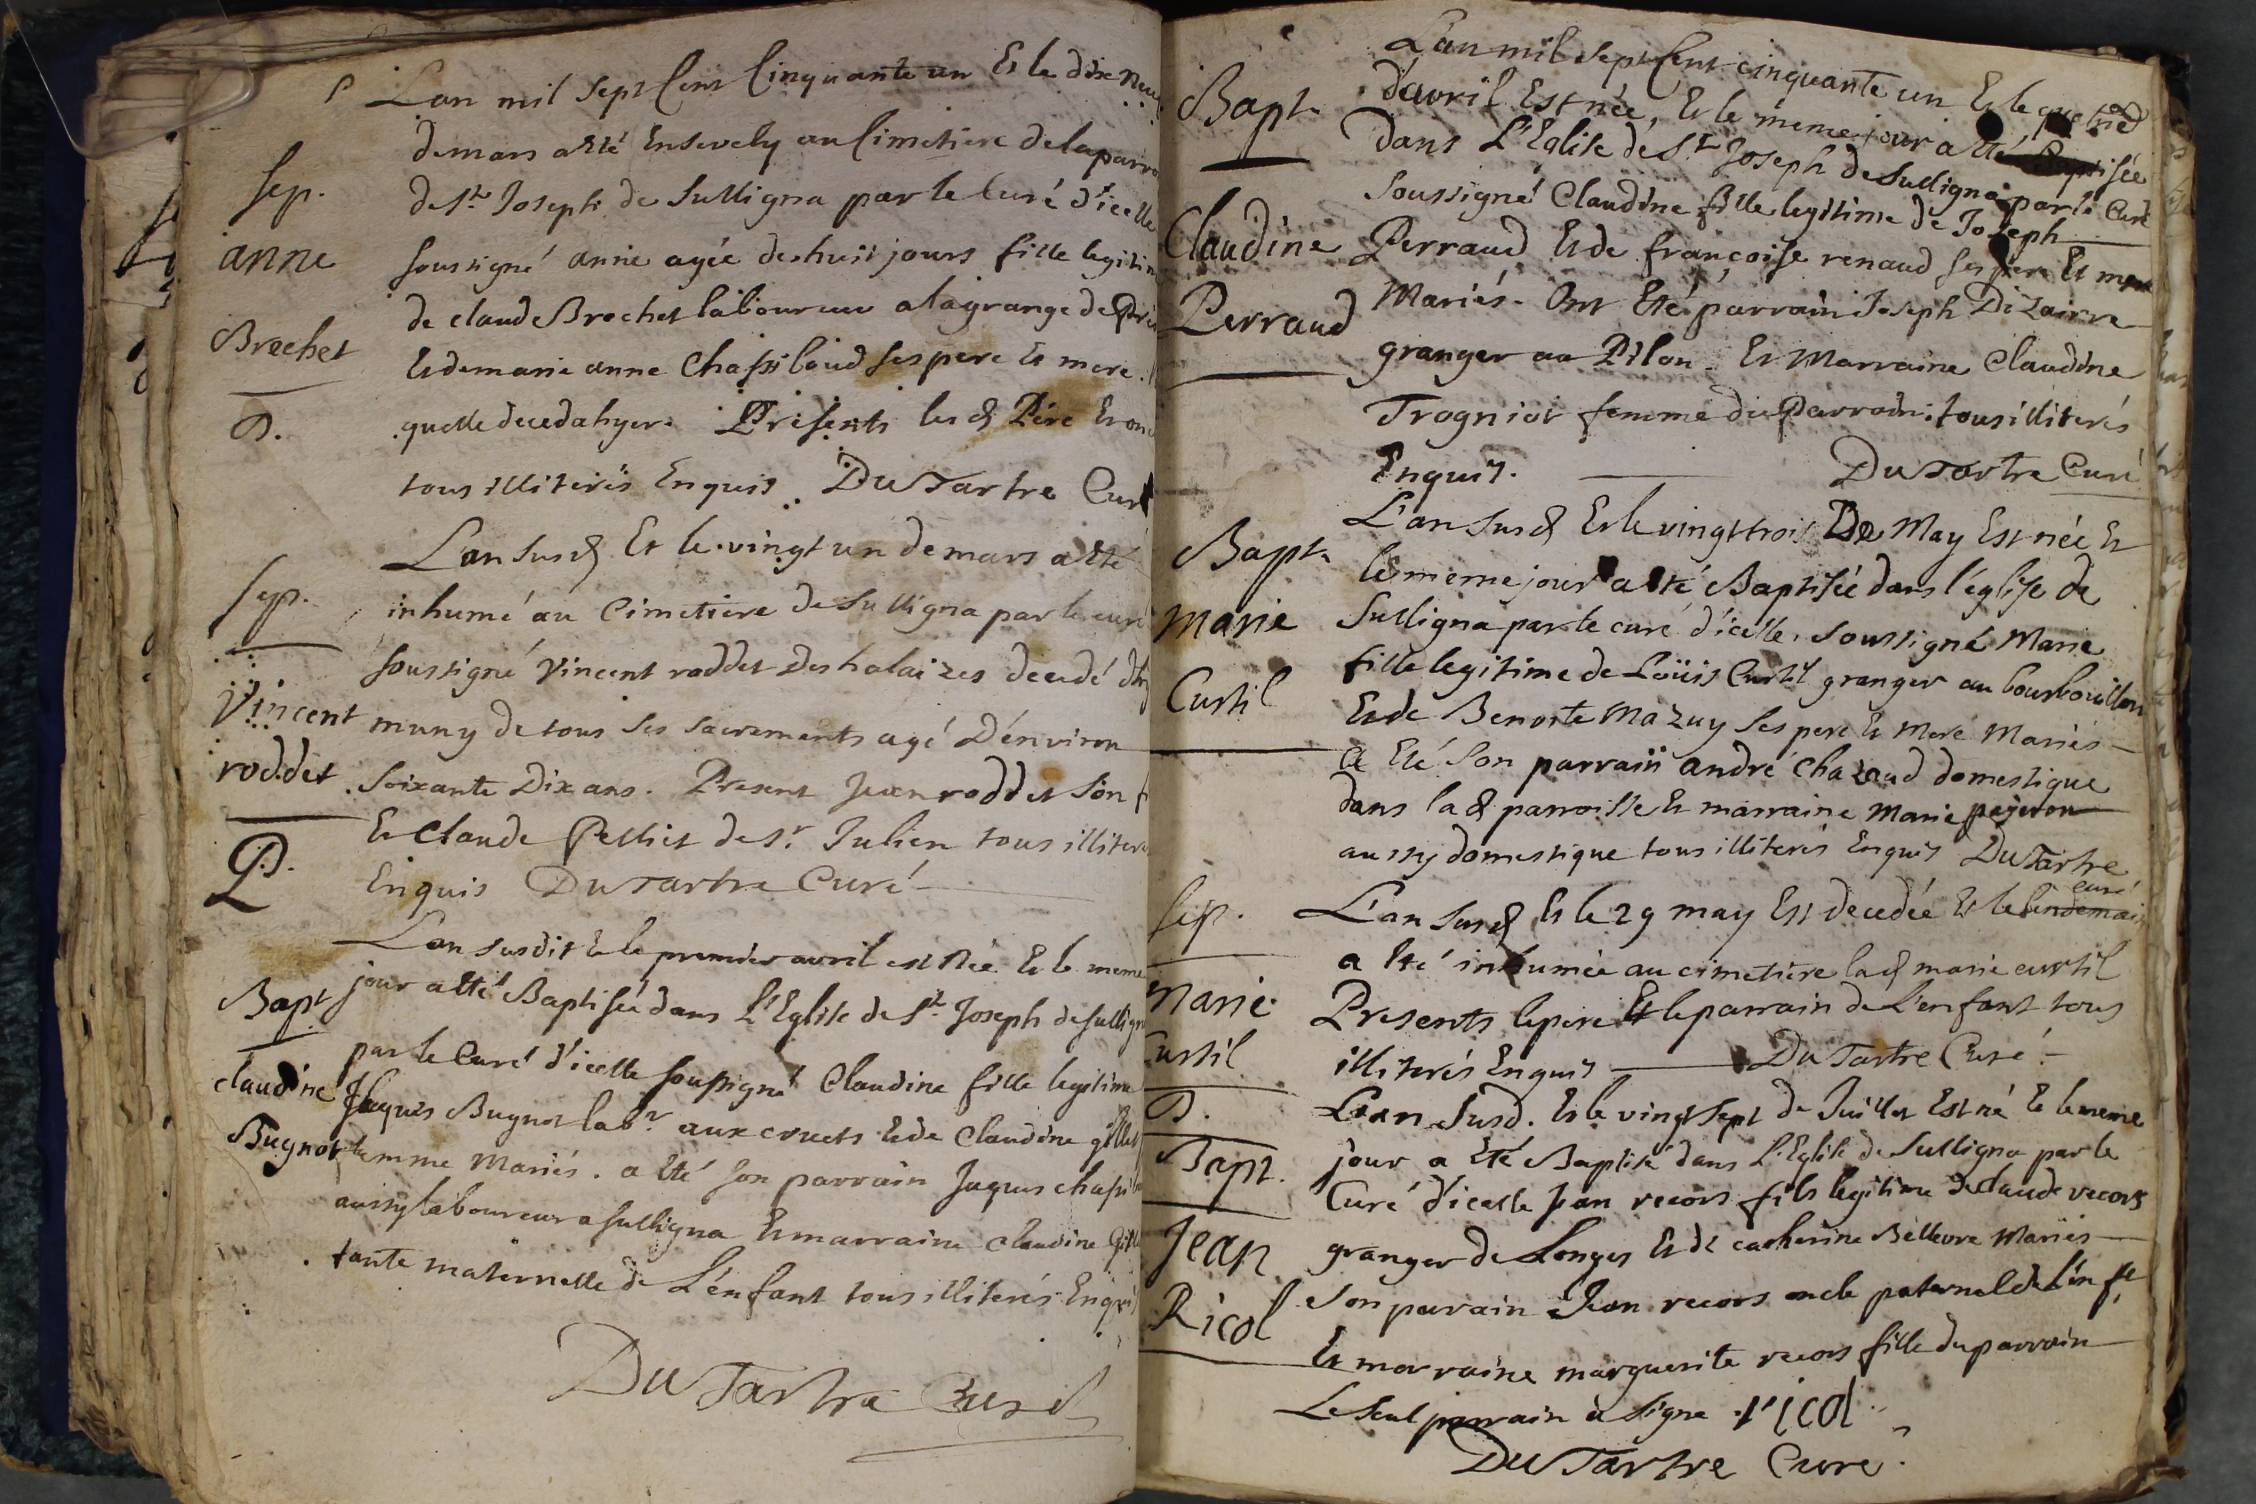 Lan mil sept Cent Cinquante un Et le dix neuf
de mars a Eté Ensevely au Cimetiere de la parro
Sep.
de St Joseph de Sulligna par le Curé d'icelle
anne
soussigné anne agée de huit jours fille legitim
de claude Brochet laboureur a la grange de
Brochet
Et de marie anne Chassiboud ses pere Et mere.
D.
quelle deceda hyer. Présents les d Père Et
tous illiterés Enquis. DuTartre Curé
Lan susd Et le vingt un de mars a Eté
Sep.
inhumé au Cimetiere de Sulligna par le curé
soussigné Vincent roddet des halaizes decedé
Vincent
muny de tous ses sacrements agé D'environ
roddet
soixante Dix ans. Present Jean roddet son f
Et Claude Pelliet de St. Julien tous illiterés
D.
Enquis DuTartre Curé
Lan susdit Et le premier avril est Née Et le meme
Bapt
jour a Eté Baptisée dans L'Eglise de St Joseph de Sulligna
par le Curé d'icelle soussigné Claudine fille legitime
claudine
Jaques Bugnot labr. aux cruets Et de Claudine gillet
Bugnot
femme Mariés. a Eté son parrain Jaques chassib
aussy laboureur a Sulligna Et marraine Claudine Gill
tante maternelle de L'enfant tous illiterés Enquis
DuTartre Curé
L'an mil sept Cent cinquante un Et le
Bapt.
d'avril Est née, Et le même jour a Eté Baptisée
dans L'Eglise de St Joseph de Sulligna par le Curé
soussigné Claudine fille legitime de Joseph
Claudine
Perraud Et de françoise renaud ses pere Et mere
Perraud
Mariés. Ont Eté parrain Joseph Dizairre
granger au Pilon. Et Marraine Claudine
Trogniot femme du Parrain. tous illiterés
Enquis. DuTartre Curé
L'an susd Et le vingt trois De May Est née Et
Bapt.
le meme jour a Eté Baptisée dans l'église de
Marie
Sulligna par le curé d'icelle. soussigné Marie
fille legitime de Loüis Curtil granger au bourbouillon
Curtil
Et de Benoite Mazuy ses pere Et Mere Mariés
a Eté son parrain andré Chazaud domestique
dans lad parroisse Et marraine Marie pageron
aussy domestique tous illiterés Enquis DuTartre
curé
Sep.
L'an susd Et le 29 may Est decedée Et le lendemain
a Eté inhumée au cimetiere lad marie curtil
Marie
Presents le pere Et le parrain de L'enfant tous
Curtil
illiterés Enquis DuTartre Curé
D.
L'an susd. Et le vingt sept de Juillet Est né Et le meme
Bapt.
jour a Eté Baptisé dans L'Eglise de Sulligna par le
Curé d'icelle Jean recors fils legitime de claude recors
Jean
granger de Longes Et de catherine Bellevre Mariés
Ricol
son parrain Jean recors oncle paternel de L'enft
Et marraine marguerite recors fille du parrain
Le seul parrain a signe ricol
DuTartre Curé.